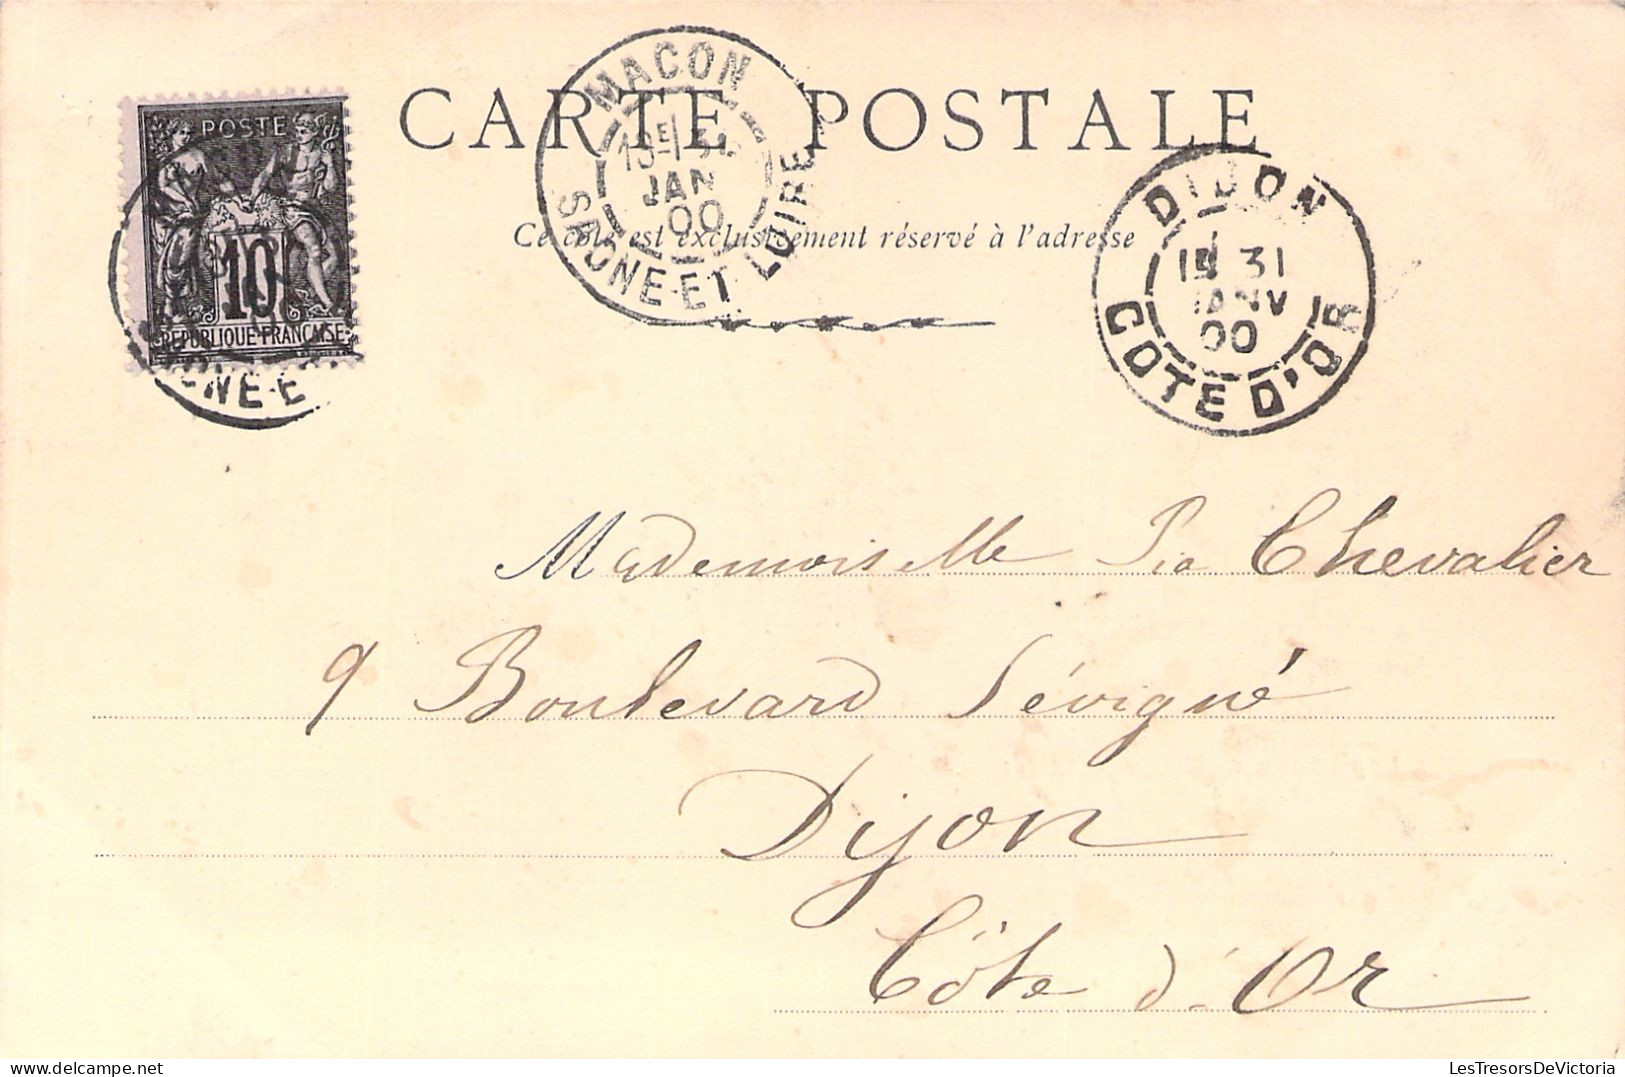 CARTE POSTALE
Ce côté est exclusivement réservé à l'adresse
POSTE
10
REPUBLIQUE FRANCAISE
NE-E
MACON
JAN
00
SAONE-ET-LOIRE
DIJON
31
JANV
00
COTE D'OR
Mademoiselle Pia Chevalier
9 Boulevard Sévigné
Dijon
Côte d'Or
LesTresorsDeVictoria